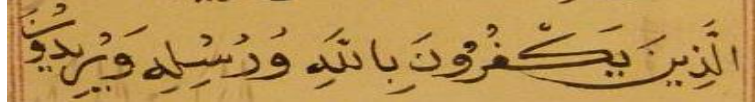 الَّذِينَ يَكْفُرُونَ بِاللَّهِ وَرُسُلِهِ وَيُرِيدُونَ